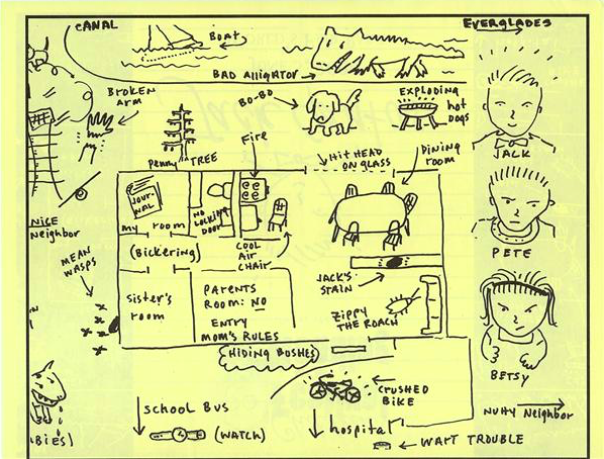 CANAL
BOAT
EVERGLADES
BAD ALLIGATOR
BROKEN
ARM
BO-BO
EXPLODING
hot
DOGS
JACK
Penny TREE
FIRE
HIT HEAD
ON GLASS
DINING
ROOM
JOUR-
NAL
my room
NO
LOCKING
DOOR
COOL
AIR
CHAIR
(BICKERING)
NICE
NEIGHBOR
MEAN
WASPS
PETE
JACK'S
STAIN
SISTER'S
ROOM
PARENTS
ROOM: NO
ENTRY
MOM'S RULES
ZIPPY
THE ROACH
HIDING BUSHES
BETSY
CRUSHED
BIKE
BIES)
SCHOOL BUS
(WATCH)
hospital
WART TROUBLE
NUTTY Neighbor